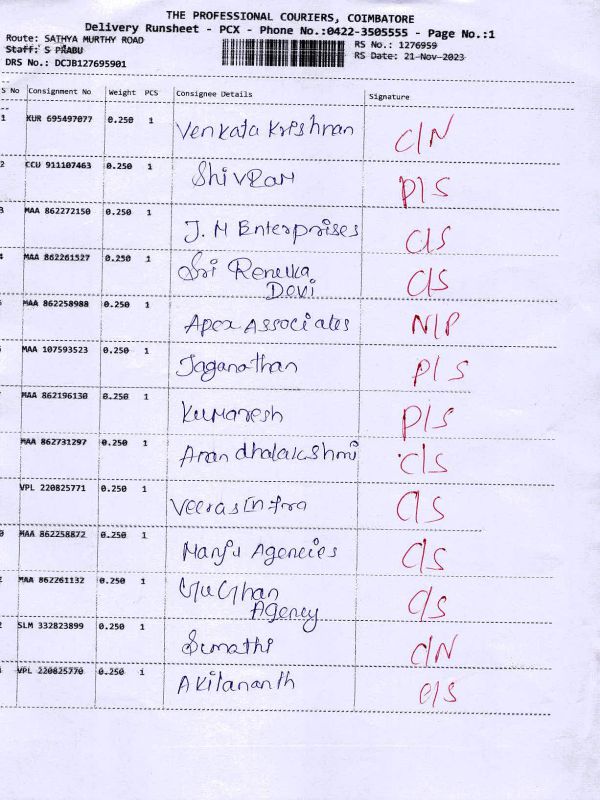 THE PROFESSIONAL COURIERS, COIMBATORE
Delivery Runsheet - PCX - Phone No.:0422-3505555 - Page No.:1
Route: SATHYA MURTHY ROAD
RS No.: 1276959
Staff: S PRABU
RS Date: 21-Nov-2023
DRS No.: DCJB127695901
S No Consignment No Weight PCS Consignee Details Signature
1 KUR 695497077 0.250 1 Venkata Krishnan C/N
2 CCU 911107463 0.250 1 Shivram P/S
3 MAA 862272150 0.250 1 J.M Enterprises C/S
4 MAA 862261527 0.250 1 Sri Renuka C/S
Devi
MAA 862258988 0.250 1 Apex Associates N/P
MAA 107593523 0.250 1 Jaganathan P/S
MAA 862196130 0.250 1 Kumaresh P/S
MAA 862731297 0.250 1 Anandhalakshmi C/S
VPL 220825771 0.250 1 Veeras Infra C/S
MAA 862258872 0.250 1 Manju Agencies C/S
MAA 862261132 0.250 1 Gughan C/S
Agency
SLM 332823899 0.250 1 Sumathi C/N
VPL 220825770 0.250 1 Akilananth C/S